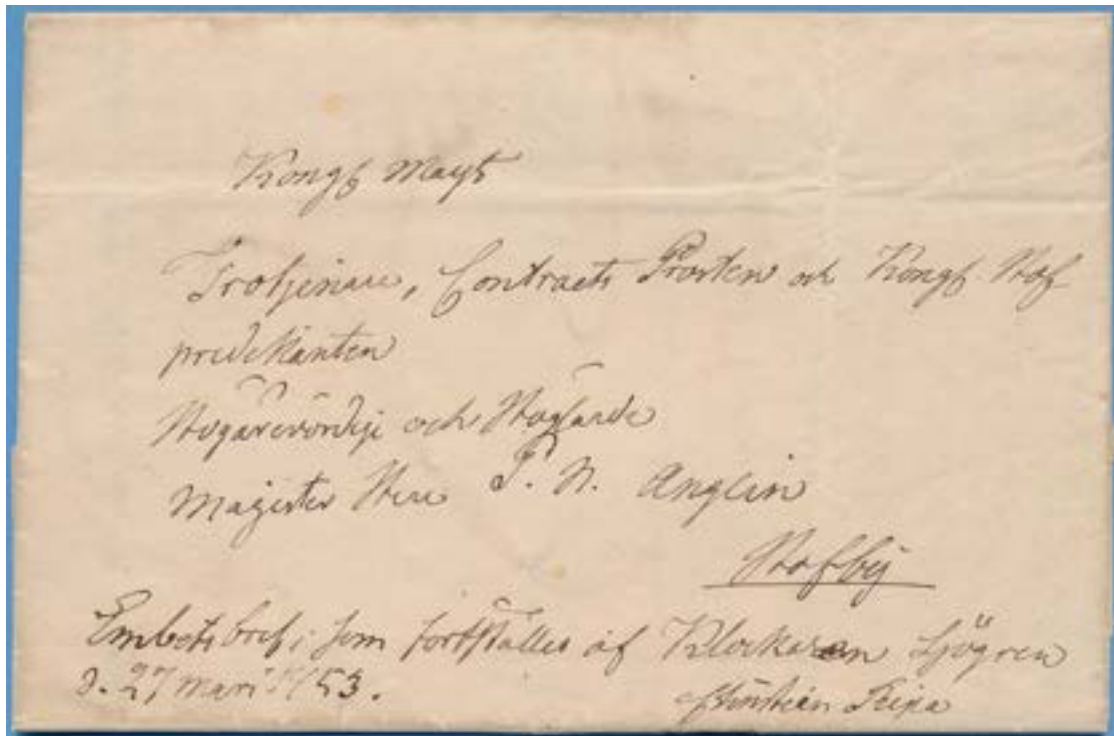 Kongl Mayts
Trotjenare, Contracts Prosten och Kongl Hof
predikanten
Högärevördige och Höglärde
Magister Herr P. N. Anglin
Hofby
Embetsbref, som fortställes af Klockaren Sjögren
d. 27 Mars 1853.
Christian